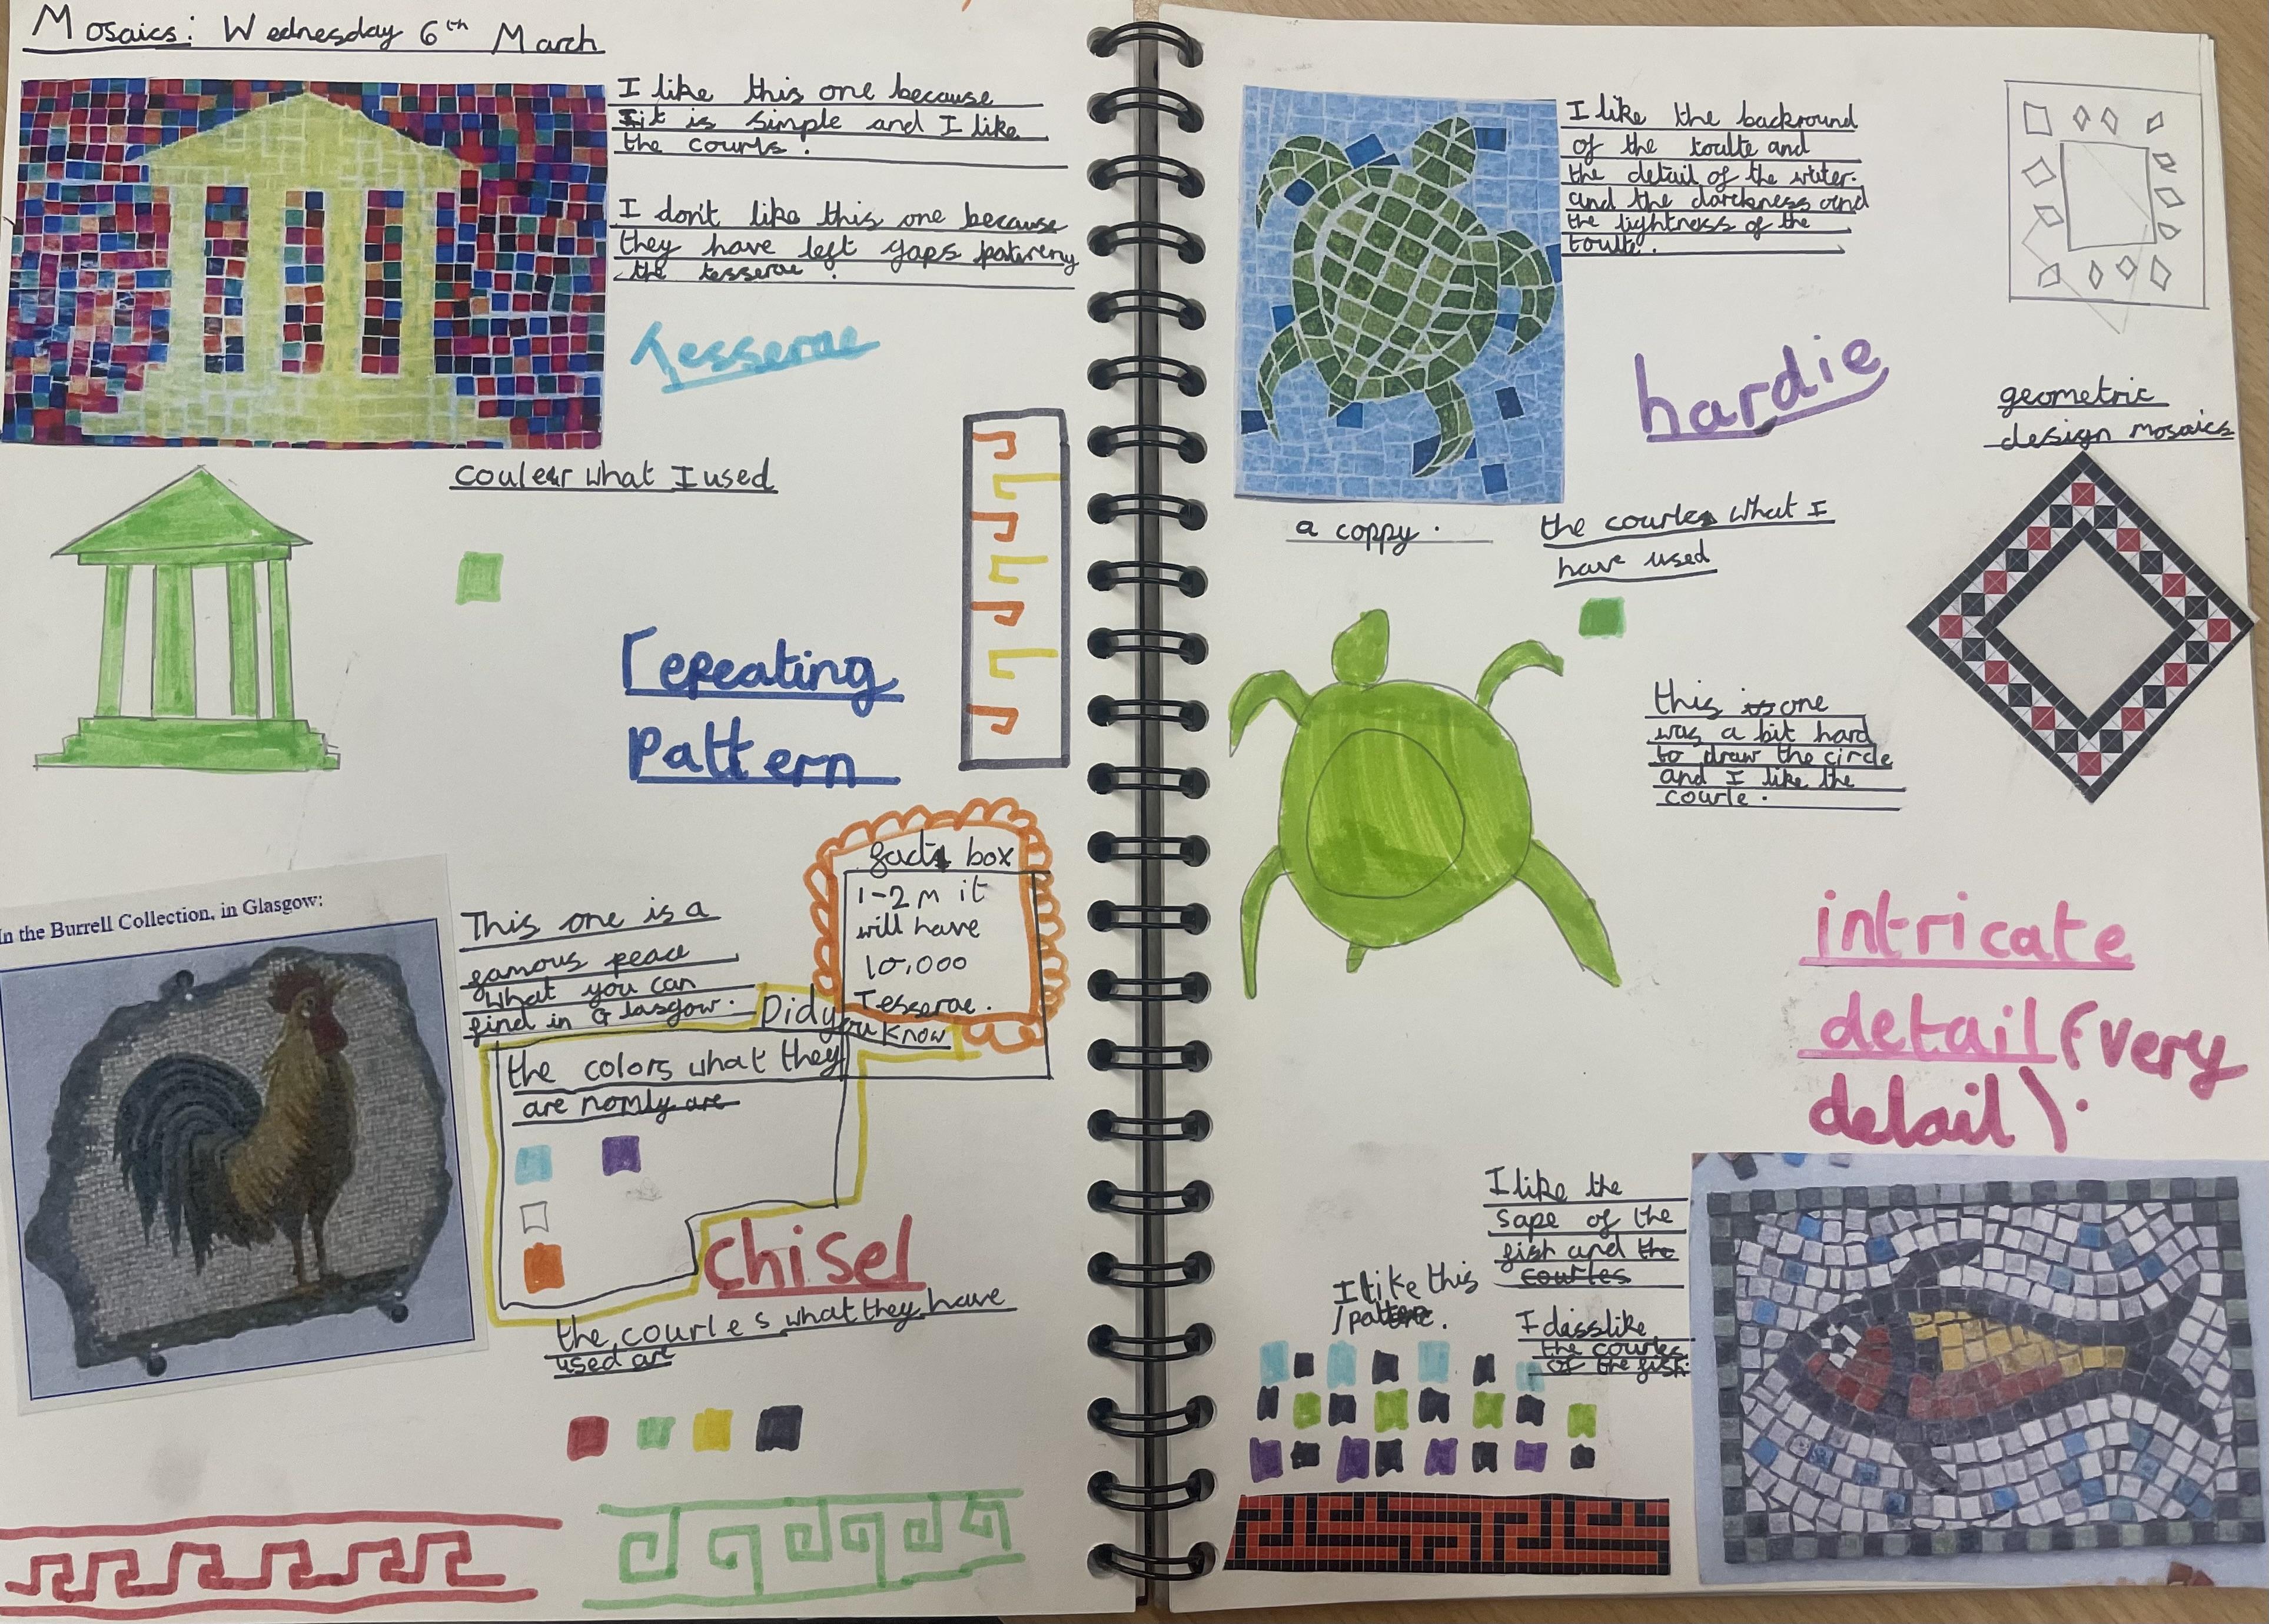 Mosaics: Wednesday 6th March
I like this one because
it is simple and I like
the courls.
I don't like this one because
they have left gaps
the tesserae.
Tesserae
couler what I used
repeating
pattern
In the Burrell Collection, in Glasgow:
This one is a
famous peace
what you can
find in Glasgow.
facts box
1-2 m it
will have
10,000
Tesserae.
Did you know
the colors what they
are nomly are
chisel
the courles what they have
used are
I like the backround
of the toulte and
the detail of the water.
and the darckness and
the lightness of the
toulte.
hardie
geometric
design mosaics
a coppy.
the courles what I
have used
this one
was a bit hard
to draw the circle
and I like the
courle.
intricate
detail (very
detail).
I like the
sape of the
fish and the
courles
I like this
I disslike
the courles
of the fish.